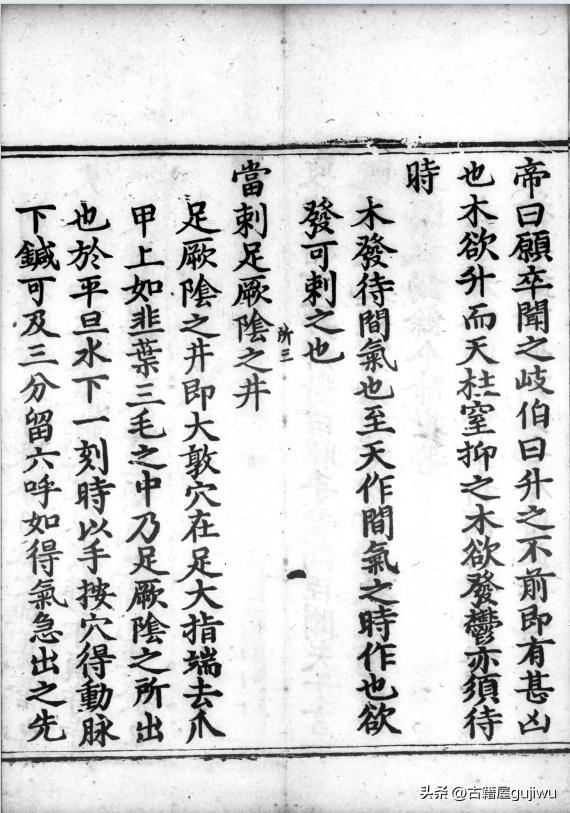 帝曰願卒聞之岐伯曰升之不前即有甚凶
也木欲升而天柱窒抑之木欲發鬱亦須待
時
木發待間氣也至天作間氣之時作也欲
發可刺之也
當刺足厥陰之井
所三
足厥陰之井即大敦穴在足大指端去爪
甲上如韭葉三毛之中乃足厥陰之所出
也於平旦水下一刻時以手按穴得動脉
下鍼可及三分留六呼如得氣急出之先
头杀 @古籍屋gujiwu